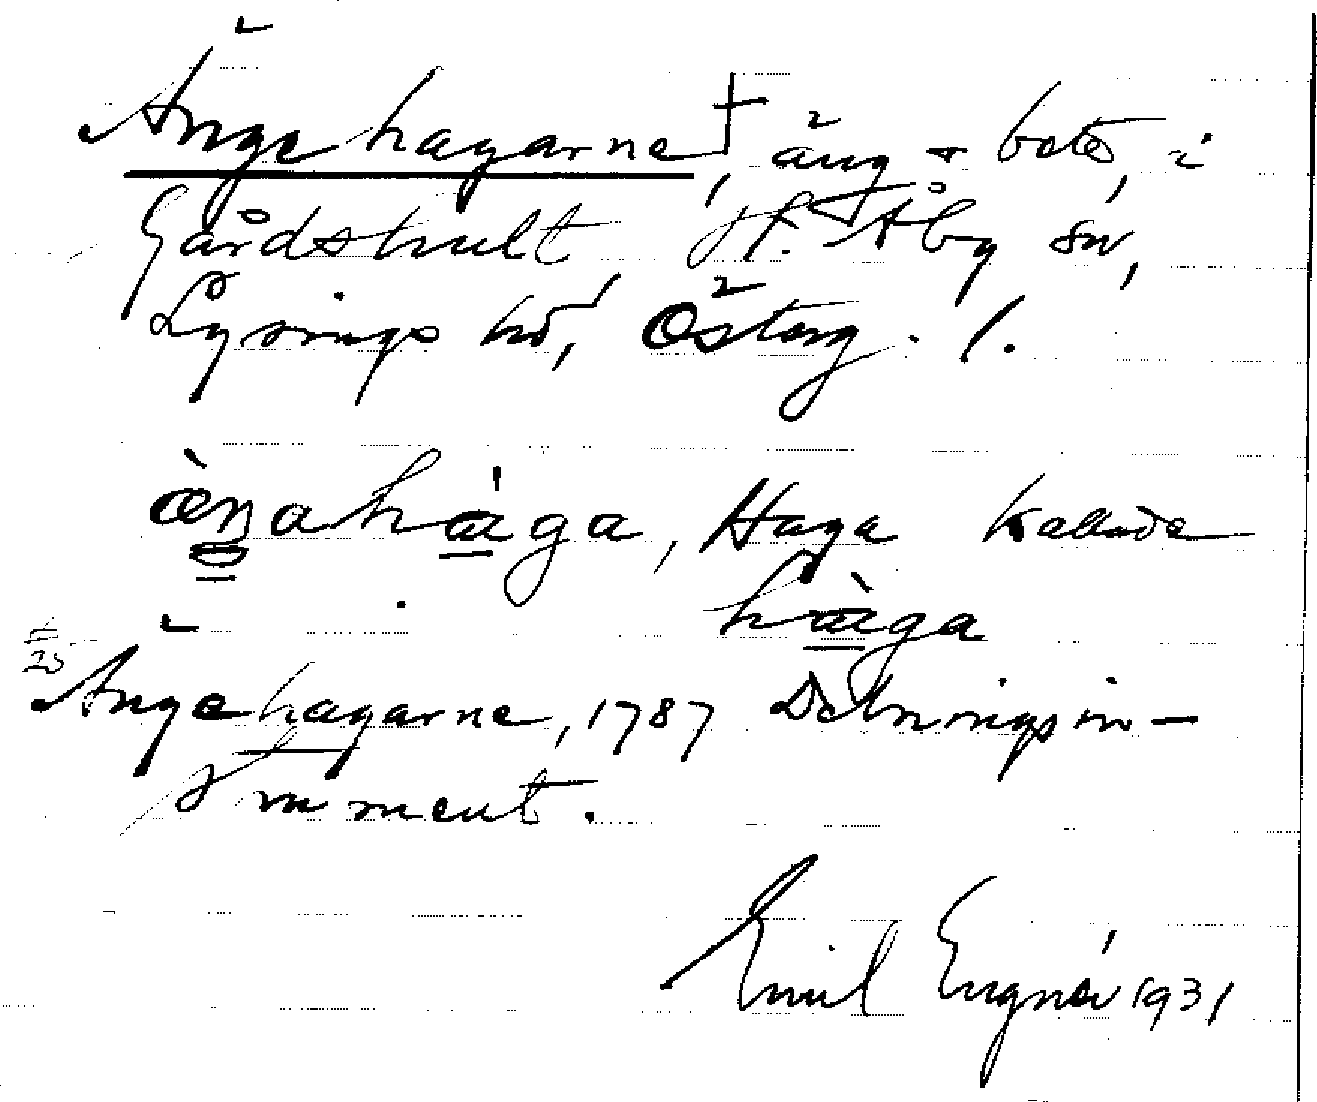 Ängehagarne†, äng o bete, i
Gårdshult, H. Åby sn,
Lysings hd, Östery. l.
æŋahaga, Haga kallade
haga
Ängehagarne, 1787 Delningsin-
strument.
Emil Engnér 1931